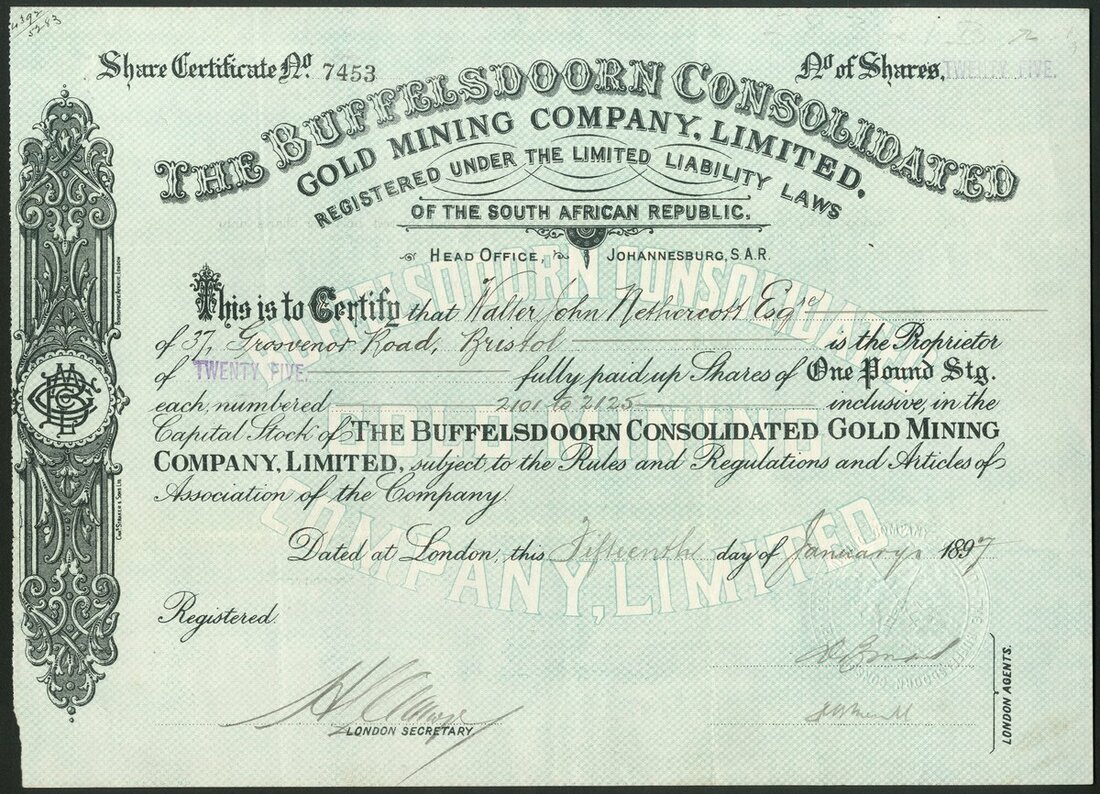 4392
5283
Share Certificate No. 7453
No. of Shares, TWENTY FIVE.
THE BUFFELSDOORN CONSOLIDATED
GOLD MINING COMPANY, LIMITED.
REGISTERED UNDER THE LIMITED LIABILITY LAWS
OF THE SOUTH AFRICAN REPUBLIC.
HEAD OFFICE, JOHANNESBURG, S.A.R.
This is to Certify that Walter John Nethercott Esqre
of 37, Grosvenor Road, Bristol is the Proprietor
of TWENTY FIVE. fully paid up Shares of One Pound Stg.
each, numbered 2101 to 2125 inclusive, in the
Capital Stock of THE BUFFELSDOORN CONSOLIDATED GOLD MINING
COMPANY, LIMITED, subject to the Rules and Regulations and Articles of
Association of the Company.
Dated at London, this Fifteenth day of January 1897
Registered.
LONDON SECRETARY
LONDON AGENTS.
BUFFELSDOORN CONSOLIDATED
GOLD MINING
COMPANY, LIMITED